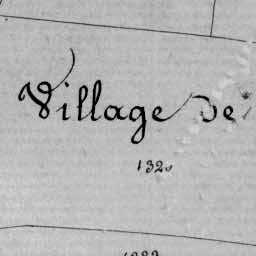 Village de
132